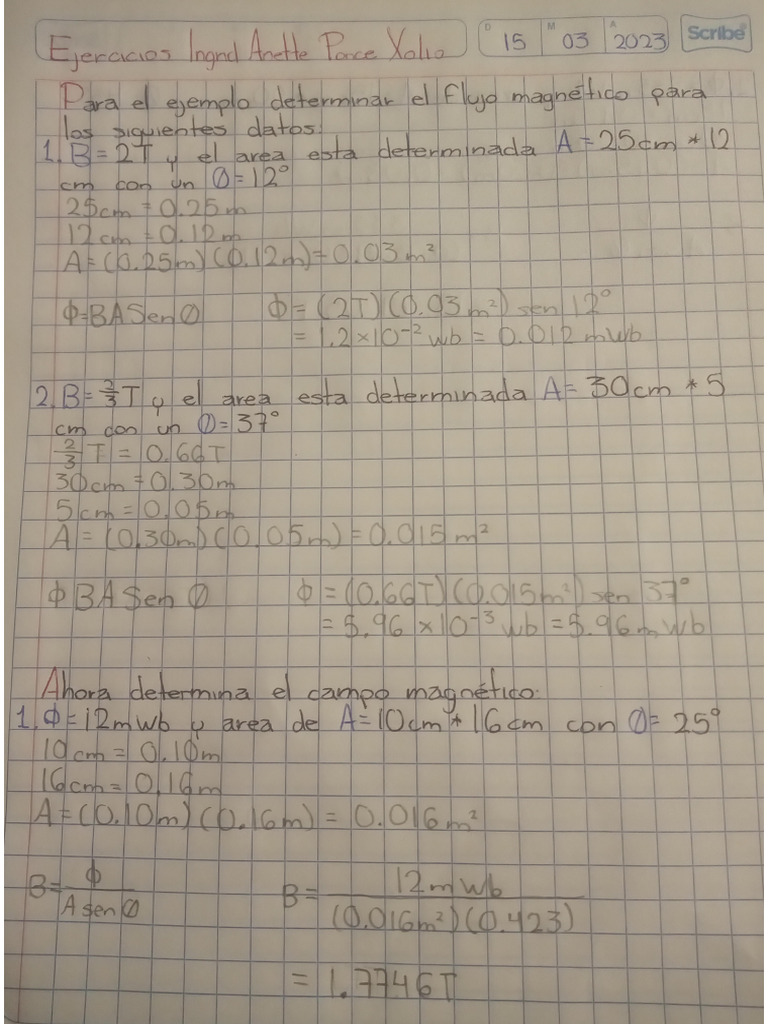 Ejercicios Ingrid Anette Ponce Xalio
D 15 M 03 A 2023 Scribe
Para el ejemplo determinar el flujo magnético para
los siguientes datos:
1. B=2T y el area esta determinada A=25cm*12
cm con un Ø=12°
25cm=0.25m
12cm=0.12m
A=(0.25m)(0.12m)=0.03m²
ϕ=BASenØ ϕ=(2T)(0.03m²)sen12°
=1.2×10⁻²wb=0.012mwb
2. B=2/3T y el area esta determinada A=30cm*5
cm con un Ø=37°
2/3 T=0.66T
30cm=0.30m
5cm=0.05m
A=(0.30m)(0.05m)=0.015m²
ϕBASenØ ϕ=(0.66T)(0.015m²)sen37°
=5.96×10⁻³wb=5.96mWb
Ahora determina el campo magnético:
1. ϕ=12mwb y area de A=10cm*16cm con Ø=25°
10cm=0.10m
16cm=0.16m
A=(0.10m)(0.16m)=0.016m²
B=ϕ/AsenØ B=12mwb/(0.016m²)(0.423)
=1.7746T